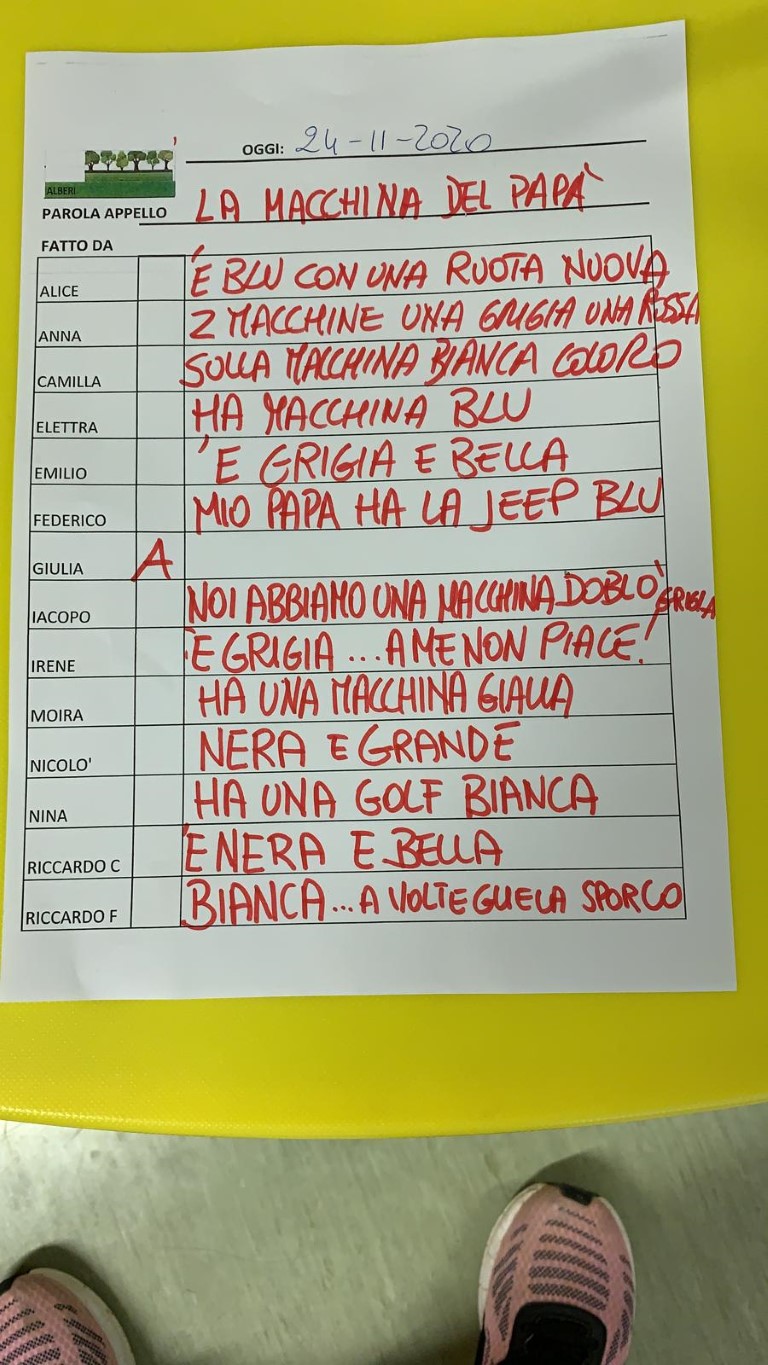 OGGI: 24-11-2020
ALBERI
PAROLA APPELLO LA MACCHINA DEL PAPÀ
FATTO DA
ALICE É BLU CON UNA RUOTA NUOVA
ANNA 2 MACCHINE UNA GRIGIA UNA ROSSA
CAMILLA SULLA MACCHINA BIANCA COLORO
ELETTRA HA MACCHINA BLU
EMILIO 'E GRIGIA E BELLA
FEDERICO MIO PAPA HA LA JEEP BLU
GIULIA A
IACOPO NOI ABBIAMO UNA MACCHINA DOBLO' GRIGIA
IRENE È GRIGIA ... A ME NON PIACE!
MOIRA HA UNA MACCHINA GIALLA
NICOLO' NERA E GRANDE
NINA HA UNA GOLF BIANCA
RICCARDO C É NERA E BELLA
RICCARDO F BIANCA... A VOLTE GUELA SPORCO